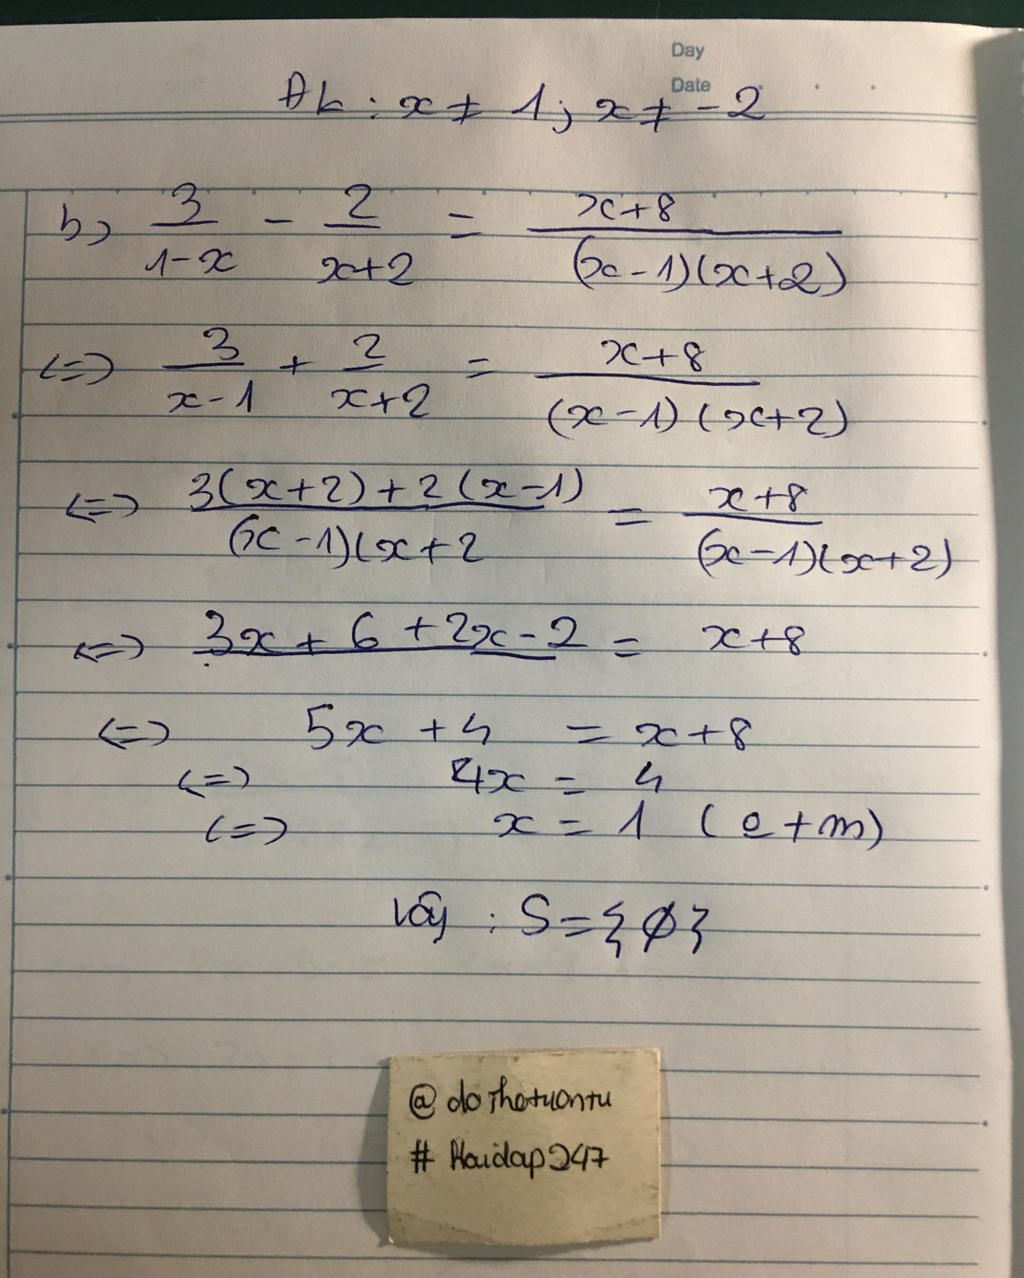 Day
Date
ĐK : x ≠ 1 ; x ≠ -2
b, 3/(1-x) - 2/(x+2) = (x+8)/((x-1)(x+2))
<=> 3/(x-1) + 2/(x+2) = (x+8)/((x-1)(x+2))
<=> (3(x+2)+2(x-1))/((x-1)(x+2) = (x+8)/((x-1)(x+2))
<=> 3x + 6 + 2x - 2 = x+8
<=> 5x + 4 = x+8
<=> 4x = 4
<=> x = 1 (
Vậy : S = {Ø}
@dothetuantu
# Hoidap247